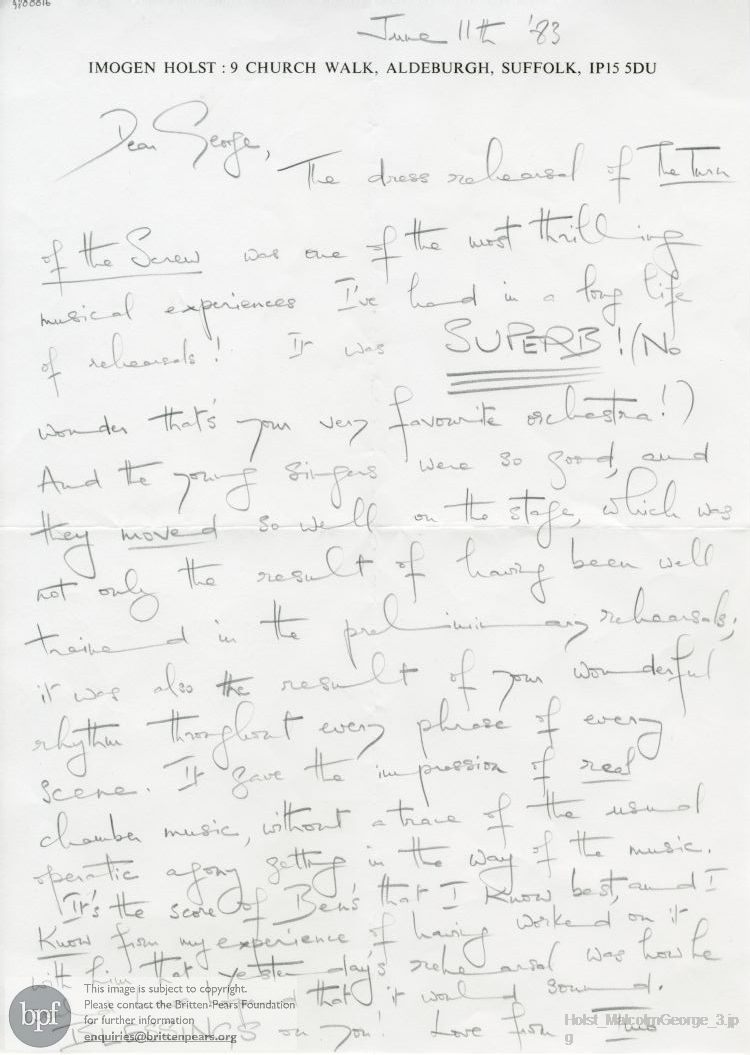 June 11th '83
IMOGEN HOLST : 9 CHURCH WALK, ALDEBURGH, SUFFOLK, IP15 5DU
Dear George,
The dress rehearsal of The Turn
of the Screw was one of the most thrilling
musical experiences I've had in a long life
of rehearsals! It was SUPERB! (No
wonder that's your very favourite orchestra!)
And the young singers were so good, and
they moved so well on the stage, which was
not only the result of having been well
trained in the preliminary rehearsals;
it was also the result of your wonderful
rhythm throughout every phrase of every
scene. It gave the impression of real
chamber music, without a trace of the usual
operatic agony getting in the way of the music.
It's the score of Ben's that I know best, and I
know from my experience of having worked on it
with him that yesterday's rehearsal was how he
that it would sound.
BLESSINGS on you! Love from Imo
bpf
This image is subject to copyright.
Please contact the Britten-Pears Foundation
for further information
enquiries@brittenpears.org
Holst_MalcolmGeorge_3.jp
g